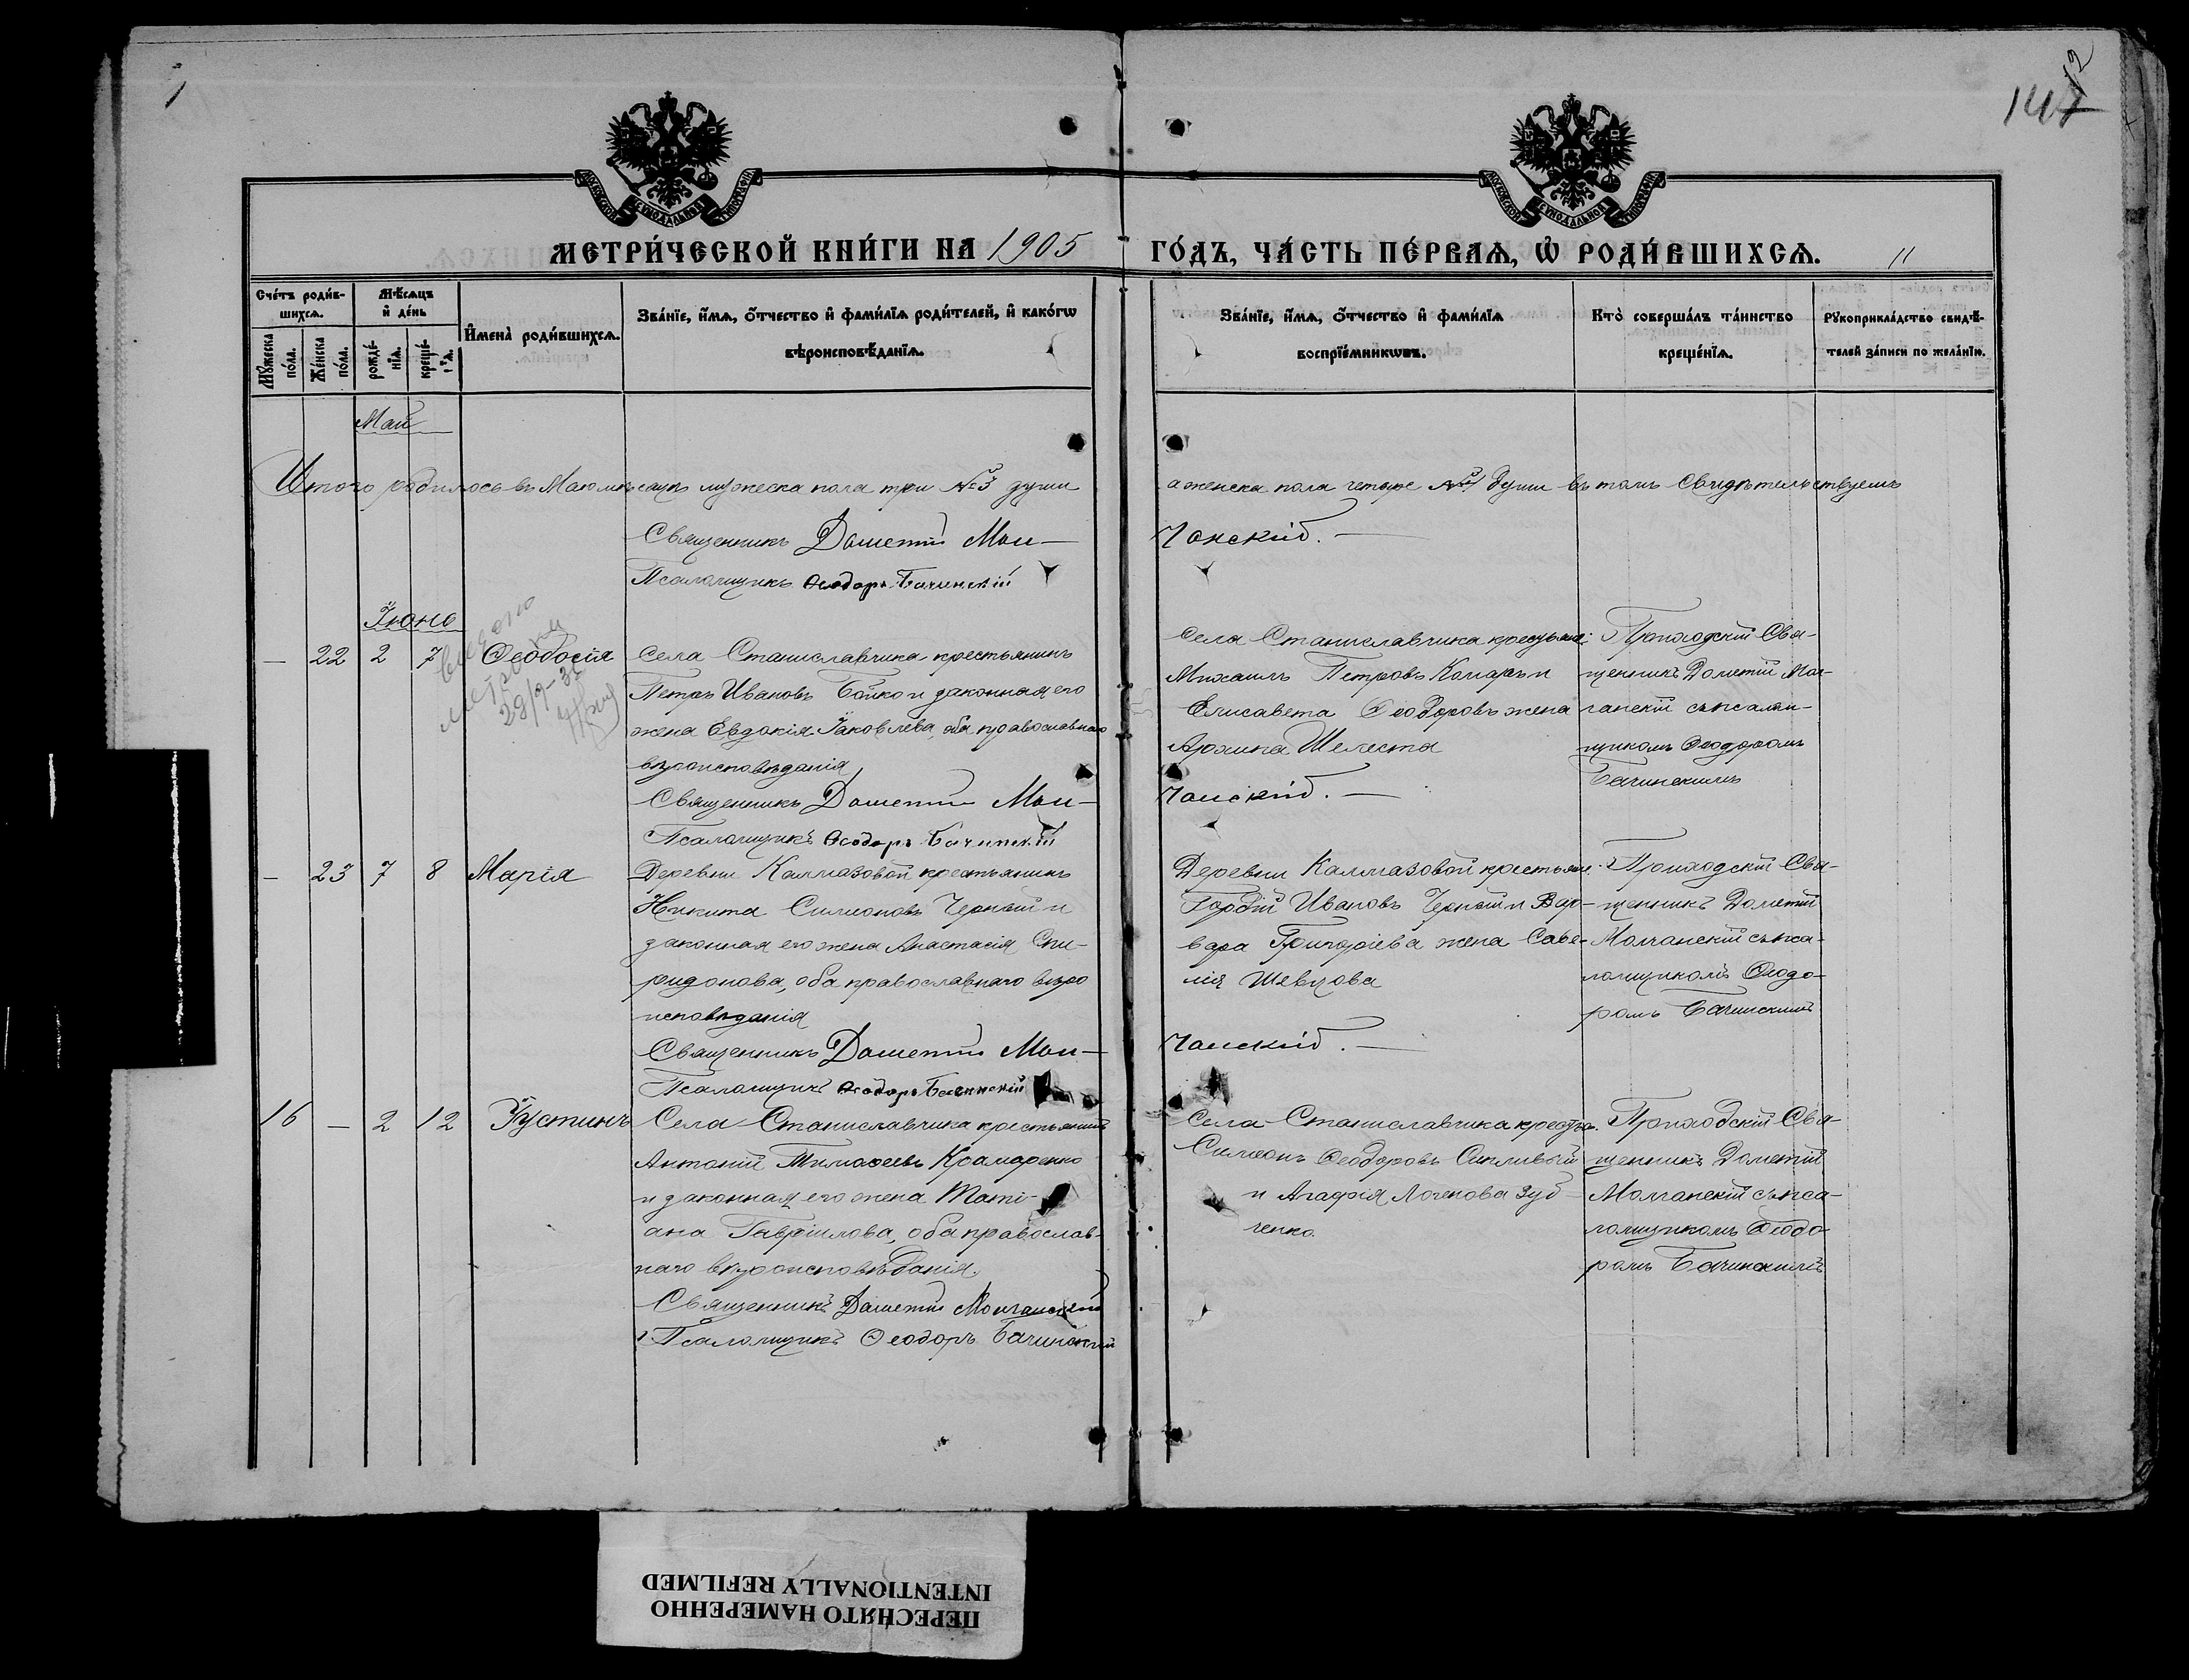 147
2
МОСКОВСКОЙ СѴНОДАЛЬНОЙ ТИПОГРАФІИ
МОСКОВСКОЙ СѴНОДАЛЬНОЙ ТИПОГРАФІИ
МЕТРИ́ЧЕСКОЙ КНИ́ГИ НА 1905 ГО́ДЪ, ЧА́СТЬ ПЕ́РВАѦ, Ѽ РОДИ́ВШИХСѦ. 11
Сче́тъ роди́в-
шихсѧ.
Мꙋ́жеска по́ла.
Же́нска по́ла.
Мѣ́сѧцъ
и҆ де́нь
рожде́-
нїѧ.
креще́-
нїѧ.
И҆мена̀ роди́вшихсѧ.
Зва́нїе, и҆́мѧ, ѻ҆́тчество и҆ фами́лїѧ роди́телей, и҆ како́гѡ
вѣроисповѣ́данїѧ.
Зва́нїе, и҆́мѧ, ѻ҆́тчество и҆ фами́лїѧ
воспрїе́мникѡвъ.
Кто̀ соверша́лъ та́инство
креще́нїѧ.
Рꙋкоприкла́дство свидѣ́-
телей за́писи по жела́нїю.
Май
Итого родилось въ Маю мѣсяцѣ мужеска пола три №3 души
а женска пола четыре души въ томъ свидѣтельствуемъ
Священникъ Дометій Мол-
чанскій.
Псаломщикъ Ѳеодоръ Бачинскій
Іюнь
— 22 2 7 Ѳеодосія
Села Станиславчика крестьянинъ
Петръ Ивановъ Бойко и законная его
жена Евдокія Іаковлева, оба православнаго
вѣроисповѣданія
Села Станиславчика крестьяне:
Михаилъ Петровъ Комаръ и
Елисавета Ѳеодоровъ жена
Шелеста
Приходскій Свя-
щенникъ Дометій Мол-
чанскій съ псалом-
щикомъ Ѳеодоромъ
Бачинскимъ
Священникъ Дометій Мол-
чанскій.
Псаломщикъ Ѳеодоръ Бачинскій
— 23 7 8 Марія
Деревни Калмазовой крестьянинъ
Никита Симеоновъ Черный и
законная его жена Анастасія Спи-
ридонова, оба православнаго вѣро
исповѣданія
Деревни Калмазовой крестьяне:
Гордій Ивановъ Черный и Вар-
вара Григоріева жена Саве-
лія Шевцова
Приходскій Свя-
щенникъ Дометій
Молчанскій съ пса-
ломщикомъ Ѳеодо-
ромъ Бачинскимъ
Священникъ Дометій Мол-
чанскій.
Псаломщикъ Ѳеодоръ Бачинскій
16 — 2 12 Іустинъ
Села Станиславчика крестьянинъ
Антоній Тимоѳеевъ Крамаренко
и законная его жена Таті-
ана Гавріилова, оба православ-
наго вѣроисповѣданія.
Села Станиславчика крестья.
Симеонъ Ѳеодоровъ
и Агафія Зуб-
ченко.
Приходскій Свя-
щенникъ Дометій
Молчанскій съ пса-
ломщикомъ Ѳеодо-
ромъ Бачинскимъ
Священникъ Дометій Молчанскій
Псаломщикъ Ѳеодоръ Бачинскій
ПЕРЕСНЯТО НАМЕРЕННО
INTENTIONALLY REFILMED